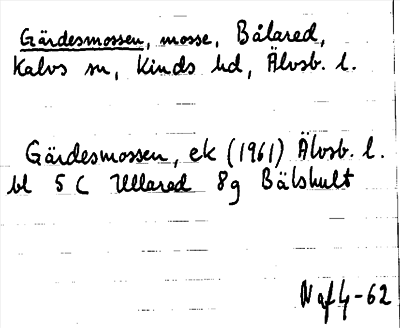 Gärdesmossen, mosse, Bålared,
Kalvs sn, Kinds hd, Älvsb. l.
Gärdesmossen, ek (1961) Älvsb. l.
bl 5 C Ullared 8g Bälshult